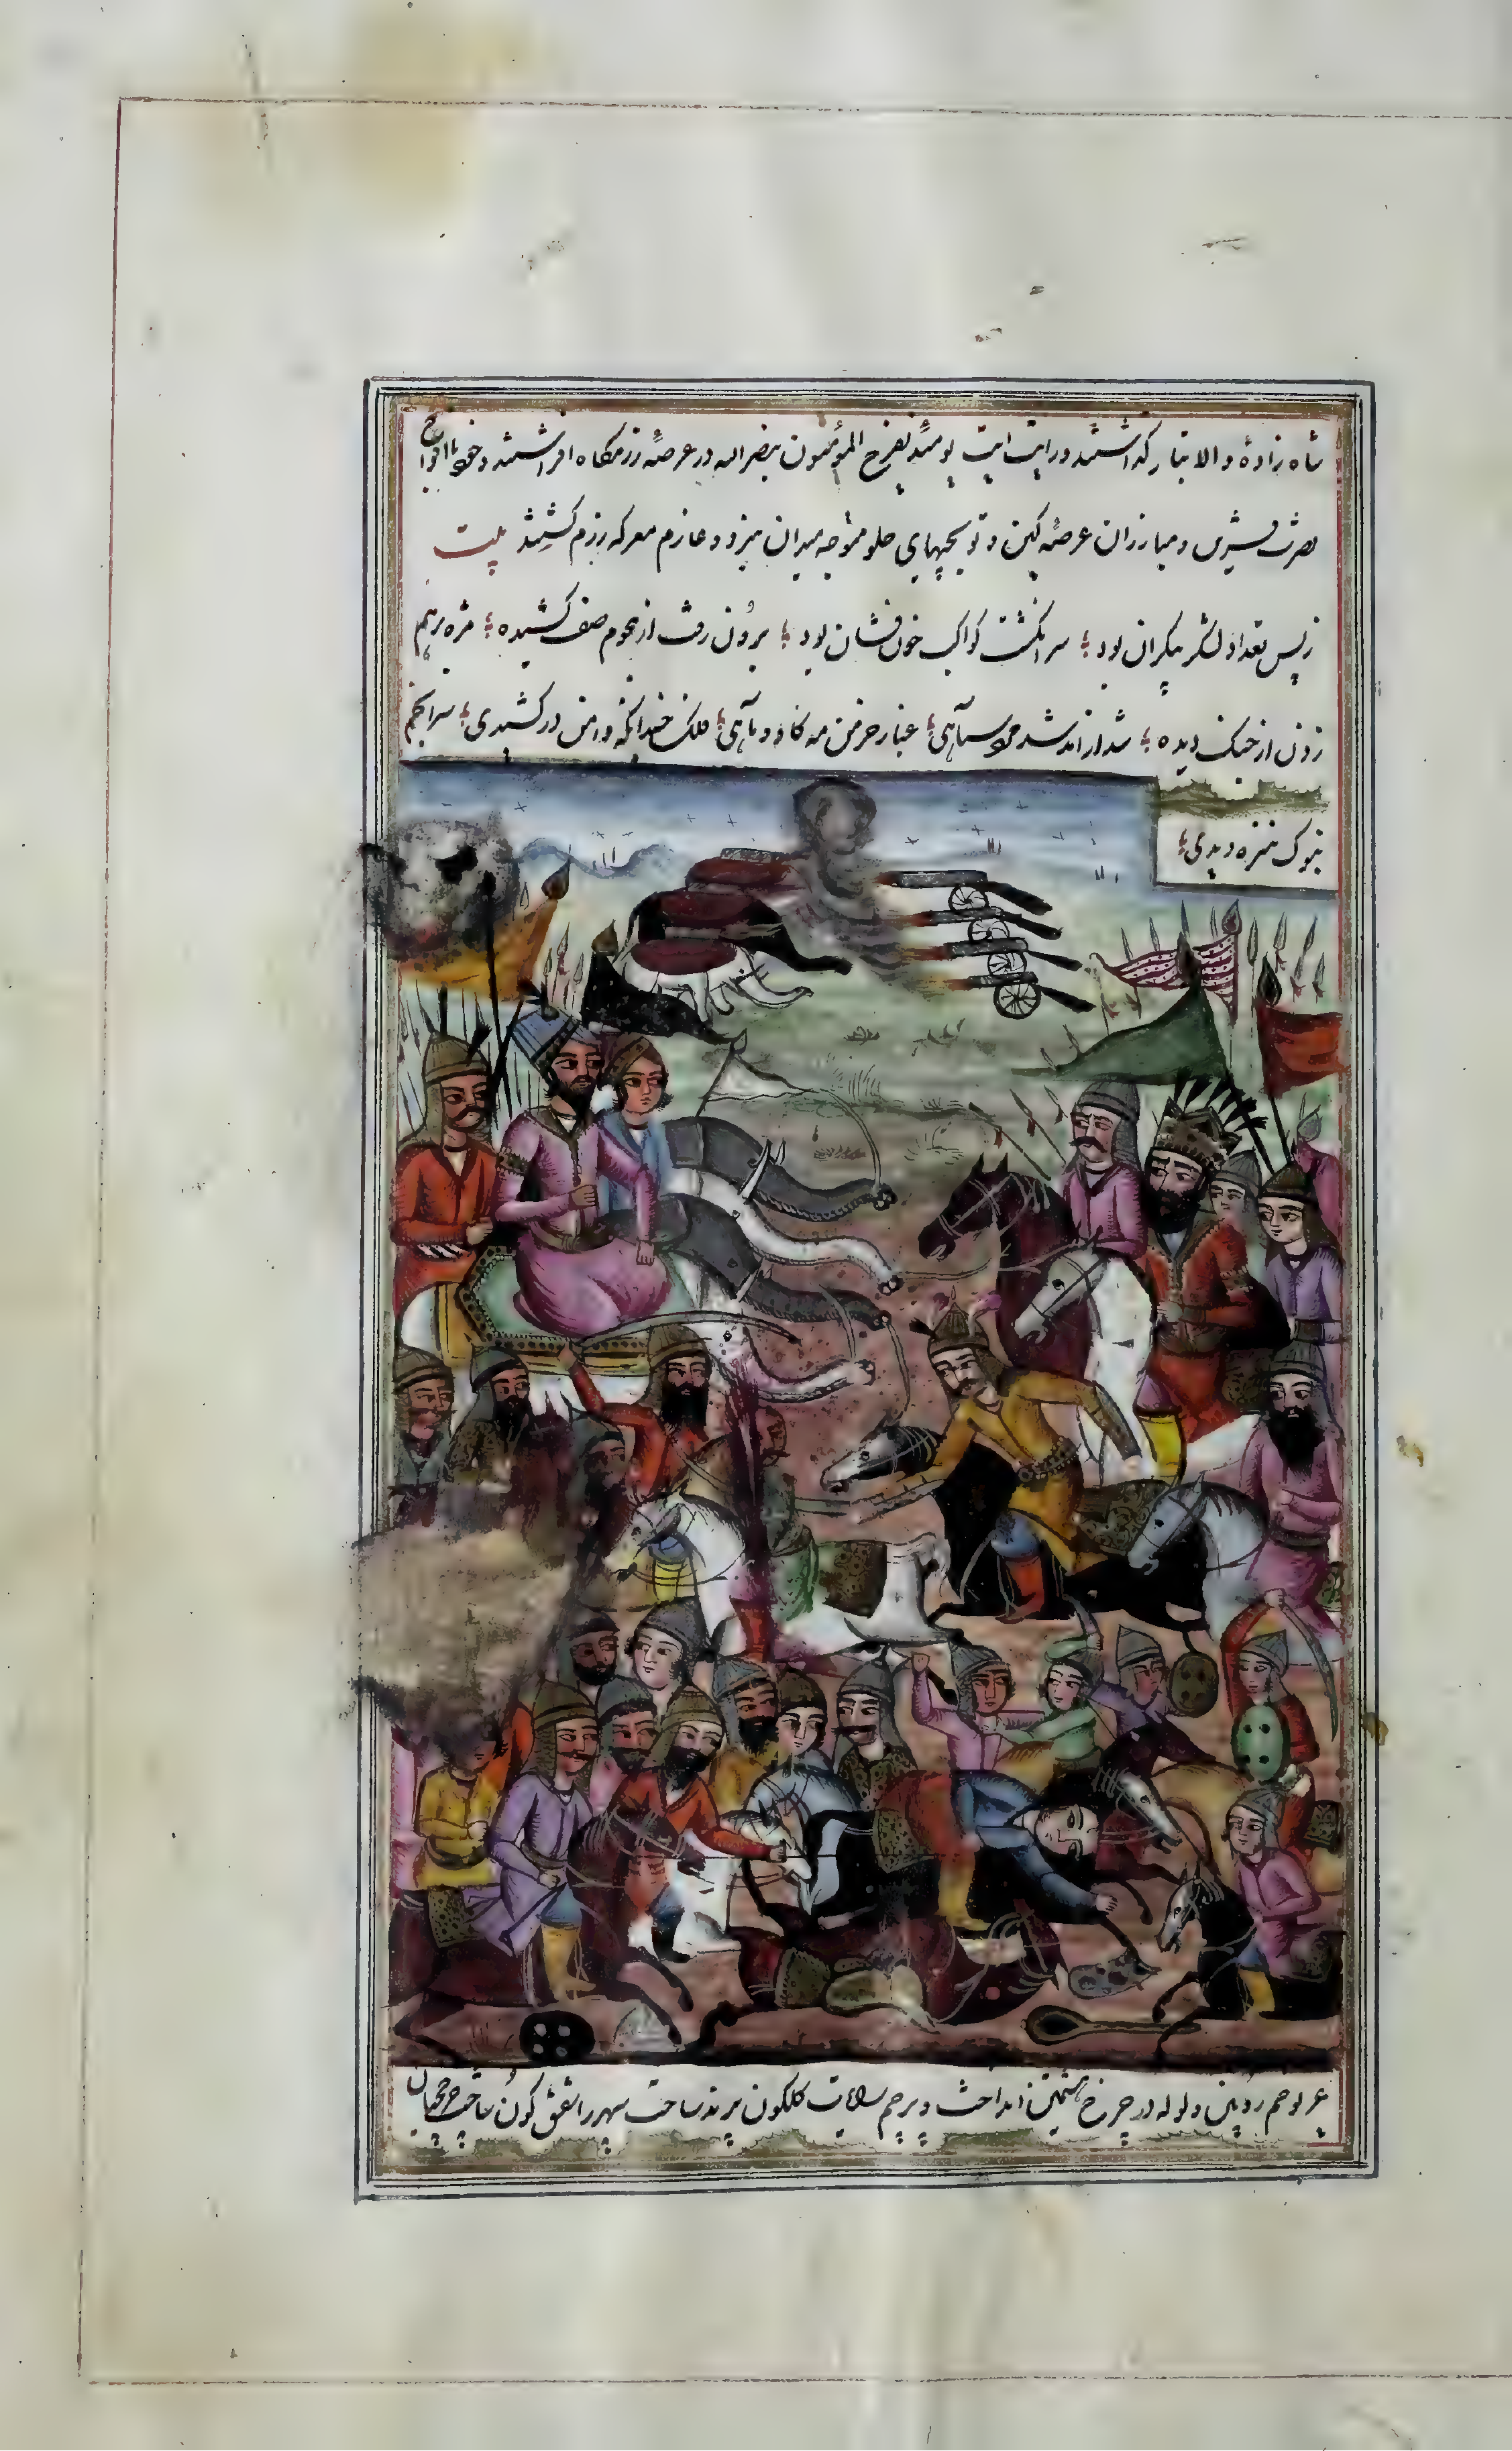 شاه زادهٔ والاتبار گذاشتند ورایت آیت یومئذ یفرح المؤمنون بنصرالله در عرصهٔ رزمگاه افراشتند و خود با افواج
نصرت قرین و مبارزان عرصهٔ کین و توپچیهای جلو متوجه میدان نبرد و عازم معرکه رزم گشتند بیت
ز بس تعداد لشکر بیکران بود سر انگشت کواکب خون فشان بود برون رفت از نجوم صف کشیده مژه برهم
زدن از جنگ دیده شد از سیاهی غبار خرمن مه گاو و ماهی فلک خود را که دامن در کشیدی سر انجم
بنوک نیزه دیدی
غریو خم روئین ولوله در چرخ هشتمین انداخت و پرچم رایات گلگون پرند ساحت سپهر را شفق گون ساخت